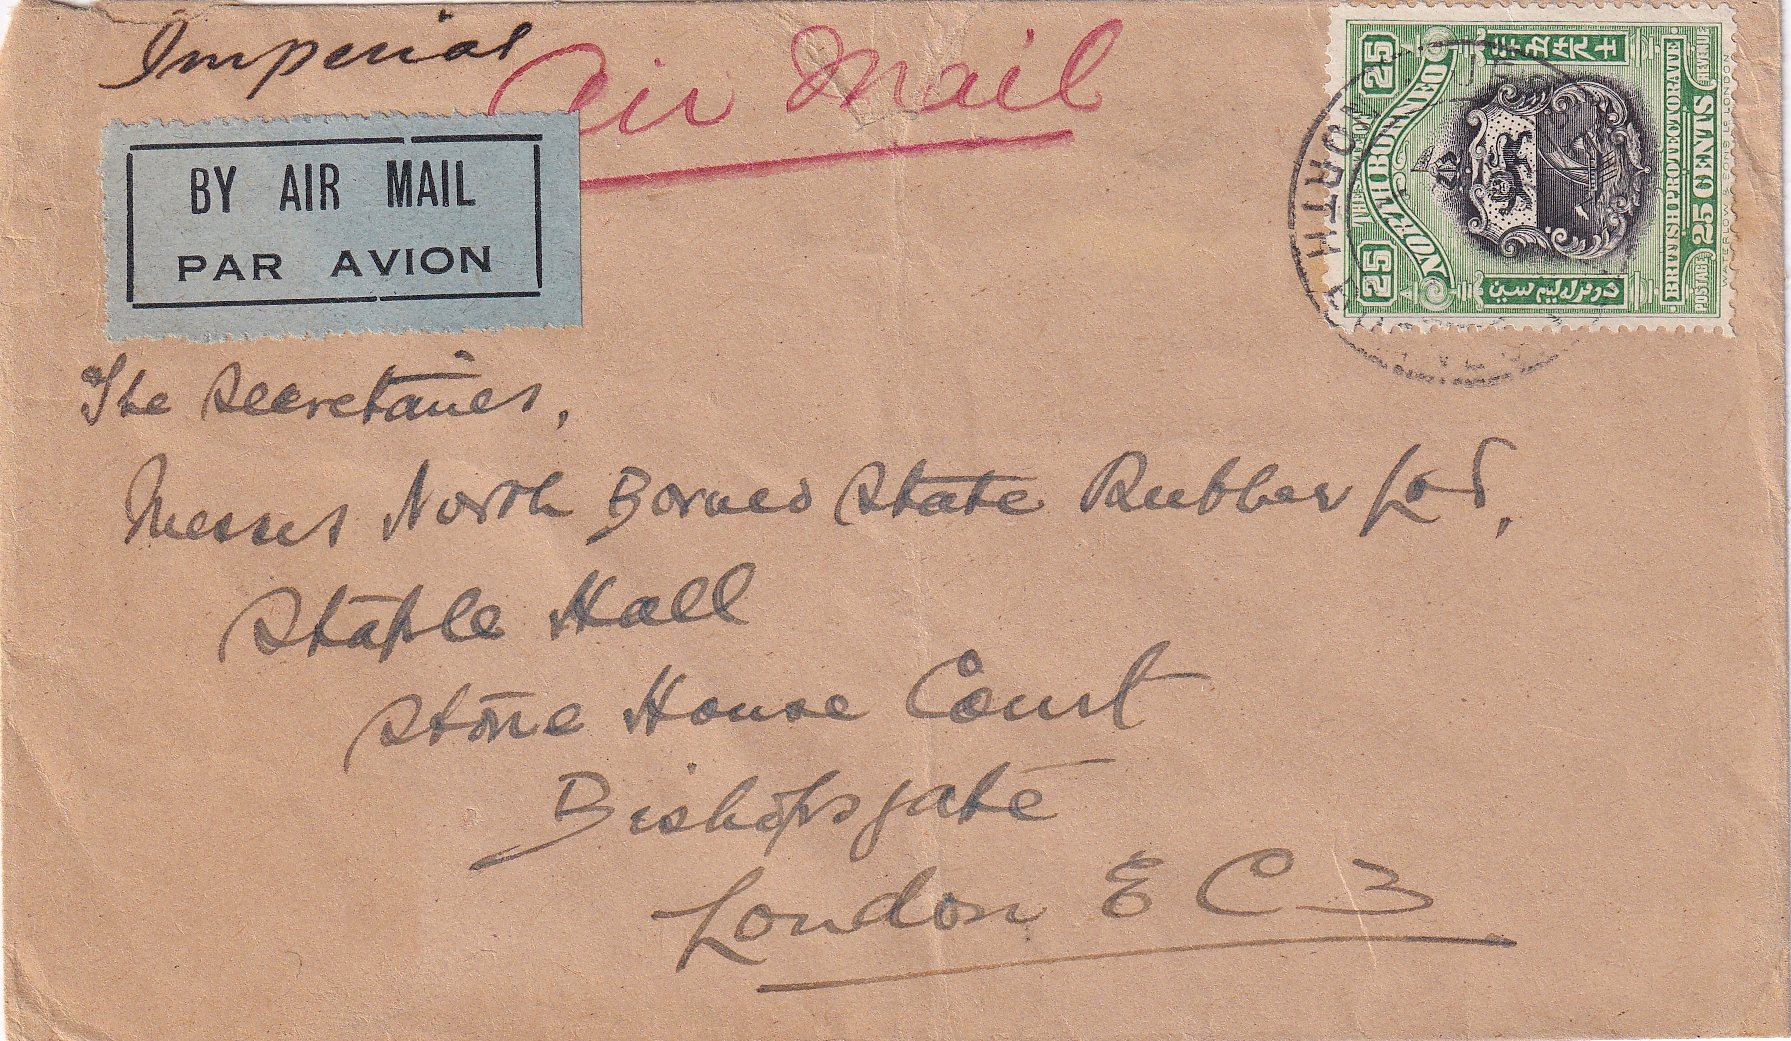 Imperial
Air Mail
BY AIR MAIL
PAR AVION
25
25
NORTH BORNEO
BRITISH PROTECTORATE
POSTAGE
25 CENTS
REVENUE
WATERLOW & SONS LD LONDON
NORTH
The Secretaries,
Messrs North Borneo State Rubber Ltd,
Staple Hall
Stone House Court
Bishopsgate
London E C 3